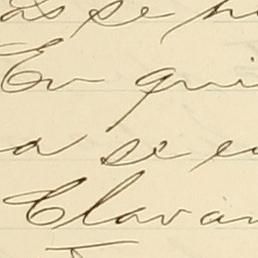 as se h
En qui
a se e
Clavar